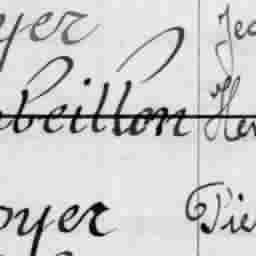 yer Jea
beillon Her
oyer Pie